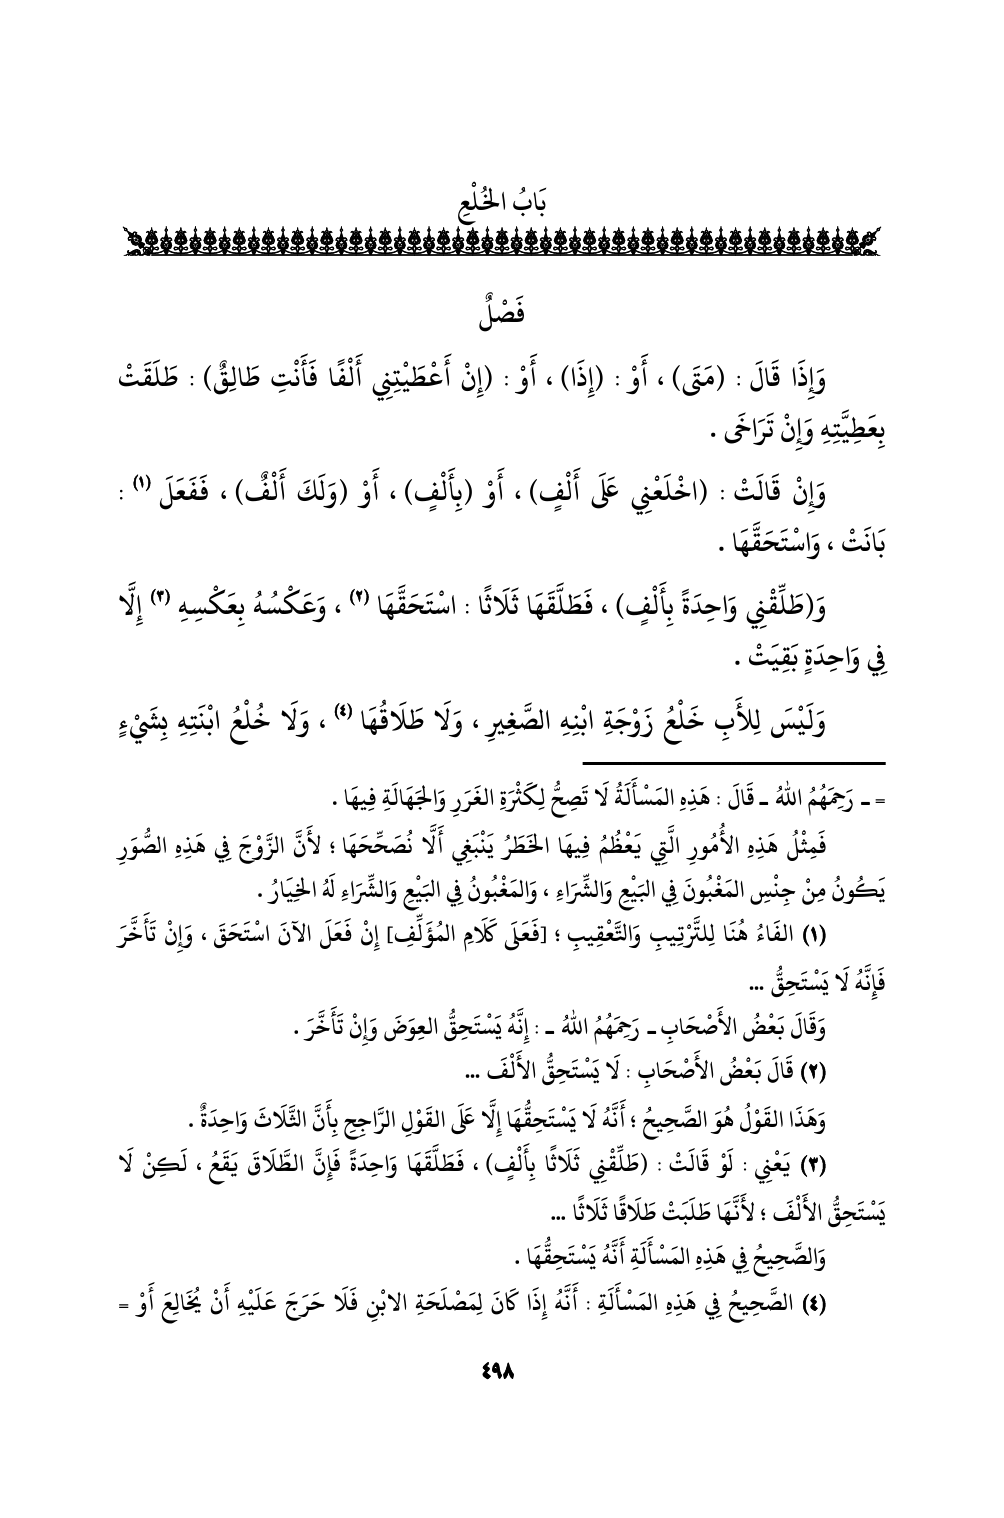 بَابُ الخُلْعِ
فَصْلٌ
وَإِذَا قَالَ : (مَتَى) ، أَوْ : (إِذَا) ، أَوْ : (إِنْ أَعْطَيْتِنِي أَلْفًا فَأَنْتِ طَالِقٌ) : طَلَقَتْ
بِعَطِيَّتِهِ وَإِنْ تَرَاخَى .
وَإِنْ قَالَتْ : (اخْلَعْنِي عَلَى أَلْفٍ) ، أَوْ (بِأَلْفٍ) ، أَوْ (وَلَكَ أَلْفٌ) ، فَفَعَلَ (١) :
بَانَتْ ، وَاسْتَحَقَّهَا .
وَ(طَلِّقْنِي وَاحِدَةً بِأَلْفٍ) ، فَطَلَّقَهَا ثَلَاثًا : اسْتَحَقَّهَا (٢) ، وَعَكْسُهُ بِعَكْسِهِ (٣) إِلَّا
فِي وَاحِدَةٍ بَقِيَتْ .
وَلَيْسَ لِلأَبِ خَلْعُ زَوْجَةِ ابْنِهِ الصَّغِيرِ ، وَلَا طَلَاقُهَا (٤) ، وَلَا خُلْعُ ابْنَتِهِ بِشَيْءٍ
= ـ رَحِمَهُمُ اللهُ ـ قَالَ : هَذِهِ المَسْأَلَةُ لَا تَصِحُّ لِكَثْرَةِ الغَرَرِ وَالجَهَالَةِ فِيهَا .
فَمِثْلُ هَذِهِ الأُمُورِ الَّتِي يَعْظُمُ فِيهَا الخَطَرُ يَنْبَغِي أَلَّا نُصَحِّحَهَا ؛ لأَنَّ الزَّوْجَ فِي هَذِهِ الصُّوَرِ
يَكُونُ مِنْ جِنْسِ المَغْبُونَ فِي البَيْعِ وَالشِّرَاءِ ، وَالمَغْبُونُ فِي البَيْعِ وَالشِّرَاءِ لَهُ الخِيَارُ .
(١) الفَاءُ هُنَا لِلتَّرْتِيبِ وَالتَّعْقِيبِ ؛ [فَعَلَى كَلَامِ المُؤَلِّفِ] إِنْ فَعَلَ الآنَ اسْتَحَقَ ، وَإِنْ تَأَخَّرَ
فَإِنَّهُ لَا يَسْتَحِقُّ ...
وَقَالَ بَعْضُ الأَصْحَابِ ـ رَحِمَهُمُ اللهُ ـ : إِنَّهُ يَسْتَحِقُّ العِوَضَ وَإِنْ تَأَخَّرَ .
(٢) قَالَ بَعْضُ الأَصْحَابِ : لَا يَسْتَحِقُّ الأَلْفَ ...
وَهَذَا القَوْلُ هُوَ الصَّحِيحُ ؛ أَنَّهُ لَا يَسْتَحِقُّهَا إِلَّا عَلَى القَوْلِ الرَّاجِحِ بِأَنَّ الثَّلَاثَ وَاحِدَةٌ .
(٣) يَعْنِي : لَوْ قَالَتْ : (طَلِّقْنِي ثَلَاثًا بِأَلْفٍ) ، فَطَلَّقَهَا وَاحِدَةً فَإِنَّ الطَّلَاقَ يَقَعُ ، لَكِنْ لَا
يَسْتَحِقُّ الأَلْفَ ؛ لأَنَّهَا طَلَبَتْ طَلَاقًا ثَلَاثًا ...
وَالصَّحِيحُ فِي هَذِهِ المَسْأَلَةِ أَنَّهُ يَسْتَحِقُّهَا .
(٤) الصَّحِيحُ فِي هَذِهِ المَسْأَلَةِ : أَنَّهُ إِذَا كَانَ لِمَصْلَحَةِ الابْنِ فَلَا حَرَجَ عَلَيْهِ أَنْ يُخَالِعَ أَوْ =
٤٩٨